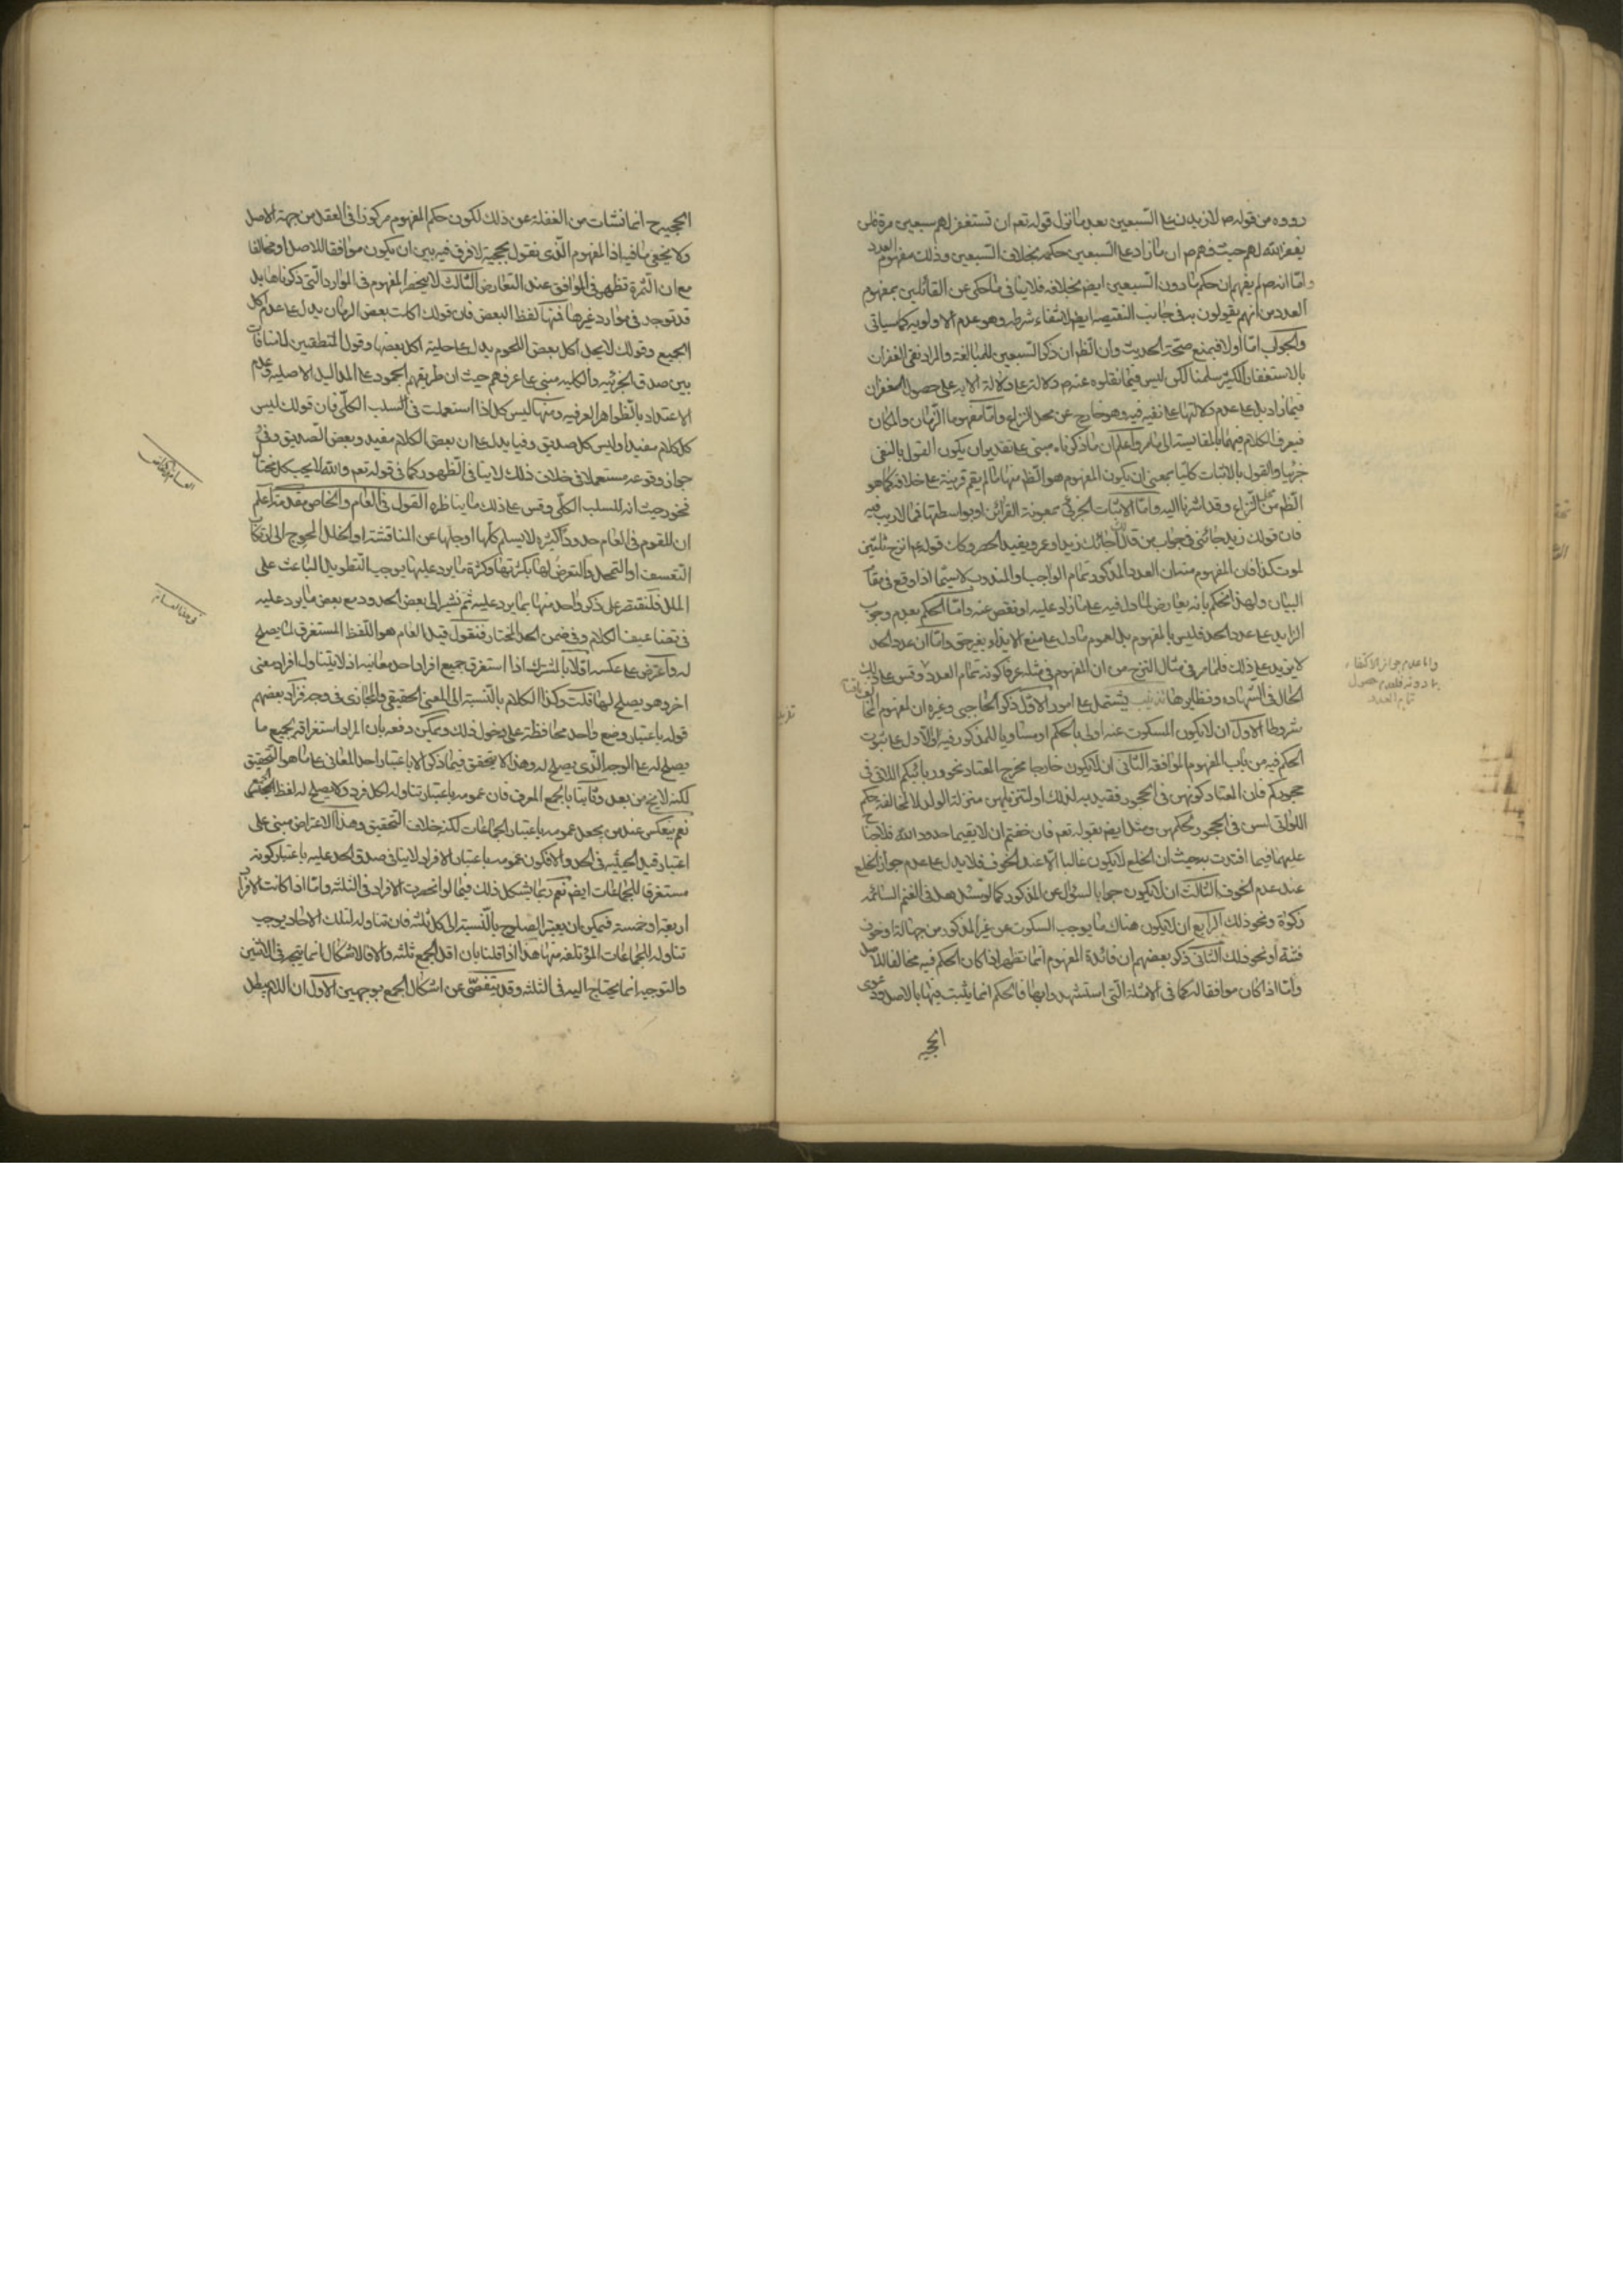 رووه من قوله ص لازيدن على السبعين بعد ما نزل قوله تعم ان تستغفر لهم سبعين مرة فلن
يغفر الله لهم حيث فهم ص ان ما زاد على السبعين حكمه بخلاف السبعين وذلك مفهوم العدد
واما انه ص لم يفهم ان حكم ما دون السبعين ايض بخلافه فلا ينافي ما حكي عن القائلين بمفهوم
العدد من انهم يقولون به في جانب النقيصه ايض لانتفاء شرطه وهو عدم الاولويه كما سياتي
والجواب اما اولا فبمنع صحة الحديث وان الظ ان ذكر السبعين للمبالغة والمراد نفي الغفران
بالاستغفار الكثير سلمنا لكن ليس فيما نقلوه عنه ص دلالة على دلالة الايه على حصول الغفران
فيما زاد بل على عدم دلالتها على نفيه فيه وهو خارج عن محل النزاع واما مفهوما الزمان والمكان
فيعرف الكلام فيهما بالمقايسة الى ما مر واعلم ان ما ذكرناه مبني على تقدير ان يكون القول بالنفي
جزئيا والقول بالاثبات كليا بمعنى ان يكون المفهوم هو الظ منها ما لم يقم قرينة على خلافه كما هو
الظ من محل النزاع وقد اشرنا اليه واما الاثبات الجزئي بمعونة القرائن او بواسطتها فمما لا ريب فيه
فان قولك زيد جائني في جواب من قال اجائك زيد او عمرو يفيد الحصر وكك قوله ع انزح ثلثين
لموت كذا فان المفهوم منه ان العدد المذكور تمام الواجب او المندوب لا سيما اذا وقع في مقام
البيان ولهذا نحكم بانه يعارض لما دل فيه على ما زاد عليه او نقص عنه واما الحكم بعدم وجوب
الزايد على عدد الحد فليس بالمفهوم بل لعموم ما دل على منع الايذاء بغير حق واما ان عدد الحد
لا يزيد على ذلك فلما مر في مثال النزح من ان المفهوم في مثله عرفا كونه تمام العدد وقس على ذلك
الحال في الشهاده ونظايرها تذنيب يشتمل على امور الاول ذكر الحاجبي وغيره ان لمفهوم المخالفة
شروطا الاول ان لا يكون المسكوت عنه اولى بالحكم او مساويا للمذكور فيه والا دل على ثبوت
الحكم فيه من باب المفهوم الموافقه الثاني ان لا يكون خارجا مخرج المعتاد نحو وربائبكم اللاتي في
حجوركم فان المعتاد كونهن في الحجور فقيد به لذلك او لتنزيلهن منزلة الولد لا لمخالفة حكم
اللواتي لسن في الحجور لحكمهن ومثل ايض بقوله تعم فان خفتم ان لا يقيما حدود الله فلا جناح
عليهما فيما افتدت به حيث ان الخلع لا يكون غالبا الا عند الخوف فلا يدل على عدم جواز الخلع
عند عدم الخوف الثالث ان لا يكون جوابا لسؤال عن المذكور كما لو سئل هل في الغنم السائمه
زكوة ونحو ذلك الرابع ان لا يكون هناك ما يوجب السكوت عن غير المذكور من جهالة او خوف
فتنة او نحو ذلك الثاني ذكر بعضهم ان فائدة المفهوم انما تظهر اذا كان الحكم فيه مخالفا للاصل
واما اذا كان موافقا له كما في الامثلة التي استشهدوا بها فالحكم انما يثبت فيها بالاصل ودعوى
واما عدم جواز الاكتفاء
بما دونه فلعدم حصول
تمام العدد
الحجيه
الحجيه ح انما نشات من الغفلة عن ذلك لكون حكم المفهوم مركوزا في العقل من جهة الاصل
ولا يخفى ما فيه اذ المفهوم الذي نقول بحجيته لا فرق فيه بين ان يكون موافقا للاصل او مخالفا
مع ان الثمرة تظهر في الموافق عند التعارض الثالث لا ينحصر المفهوم في الموارد التي ذكرناها بل
قد توجد في موارد غيرها فمنها لفظ البعض فان قولك اكلت بعض الرمان يدل على عدم اكل
الجميع وقولك لا يحل اكل بعض اللحوم يدل على حلية اكل بعضها وقول المنطقيين لا منافات
بين صدق الجزئيه والكليه مبني على عرفهم حيث ان طريقهم الجمود على المداليل الاصليه وعدم
الاعتداد بالظواهر العرفيه ومنها ليس كل اذا استعملت في السلب الكلي فان قولك ليس
كل كلام مفيدا وليس كل صديق وفيا يدل على ان بعض الكلام مفيد وبعض الصديق وفي
جواز وقوعه مستعملا في خلاف ذلك لا ينافي الظهور كما في قوله تعم والله لا يحب كل مختال
فخور حيث انه للسلب الكلي وقس على ذلك ما يناظره القول في العام والخاص مقدمة اعلم
ان للقوم في العام حدودا كثيره لا يسلم كلها او جلها عن المناقشة او الخلل المحوج الى ارتكاب
التعسف او التمحل والتعرض لها بكثرتها وكثرة ما يرد عليها يوجب التطويل الباعث على
الملل فلنقتصر على ذكر واحد منها بما يرد عليه ثم نشير الى بعض الحدود مع بعض ما يرد عليه
في تضاعيف الكلام وفي ضمن الحد المختار فنقول قيل العام هو اللفظ المستغرق لما يصلح
له واعترض على عكسه اولا بالمشترك اذا استغرق جميع افراد احد معانيه اذ لا يتناول افراد معنى
اخر وهو يصلح لها قلت وكذا الكلام بالنسبة الى المعنى الحقيقي والمجازي في وجه فزاد بعضهم
قوله باعتبار وضع واحد محافظة على دخول ذلك ويمكن دفعه بان المراد استغراقه لجميع ما
يصلح له على الوجه الذي يصلح له وهذا لا يتحقق فيما ذكر الا باعتبار احد المعاني على ما هو التحقيق
لكنه لا يخ من بعد وثانيا بالجمع المعرف فان عمومه باعتبار تناوله لكل فرد ولا يصلح له لفظ الجمع
نعم ينعكس عند من يجعل عمومه باعتبار الجماعات لكنه خلاف التحقيق وهذا الاعتراض مبني على
اعتبار قيد الحيثيه في الحد والا فكون عمومه باعتبار الافراد لا ينافي صدق الحد عليه باعتبار كونه
مستغرقا للجماعات ايض نعم ربما يشكل ذلك فيما لو انحصرت الافراد في الثلثه واما اذا كانت الافراد
اربعة او خمسة فيمكن ان يعتبر الصلوح بالنسبة الى كل ثلثه فان تناوله لتلك الاحاد يوجب
تناوله للجماعات المؤتلفه منها هذا اذا قلنا بان اقل الجمع ثلثه والا فالاشكال انما يتجه في الاثنين
والتوجيه انما يحتاج اليه في الثلثه وقد يتفصى عن اشكال الجمع بوجهين الاول ان اللام يبطل